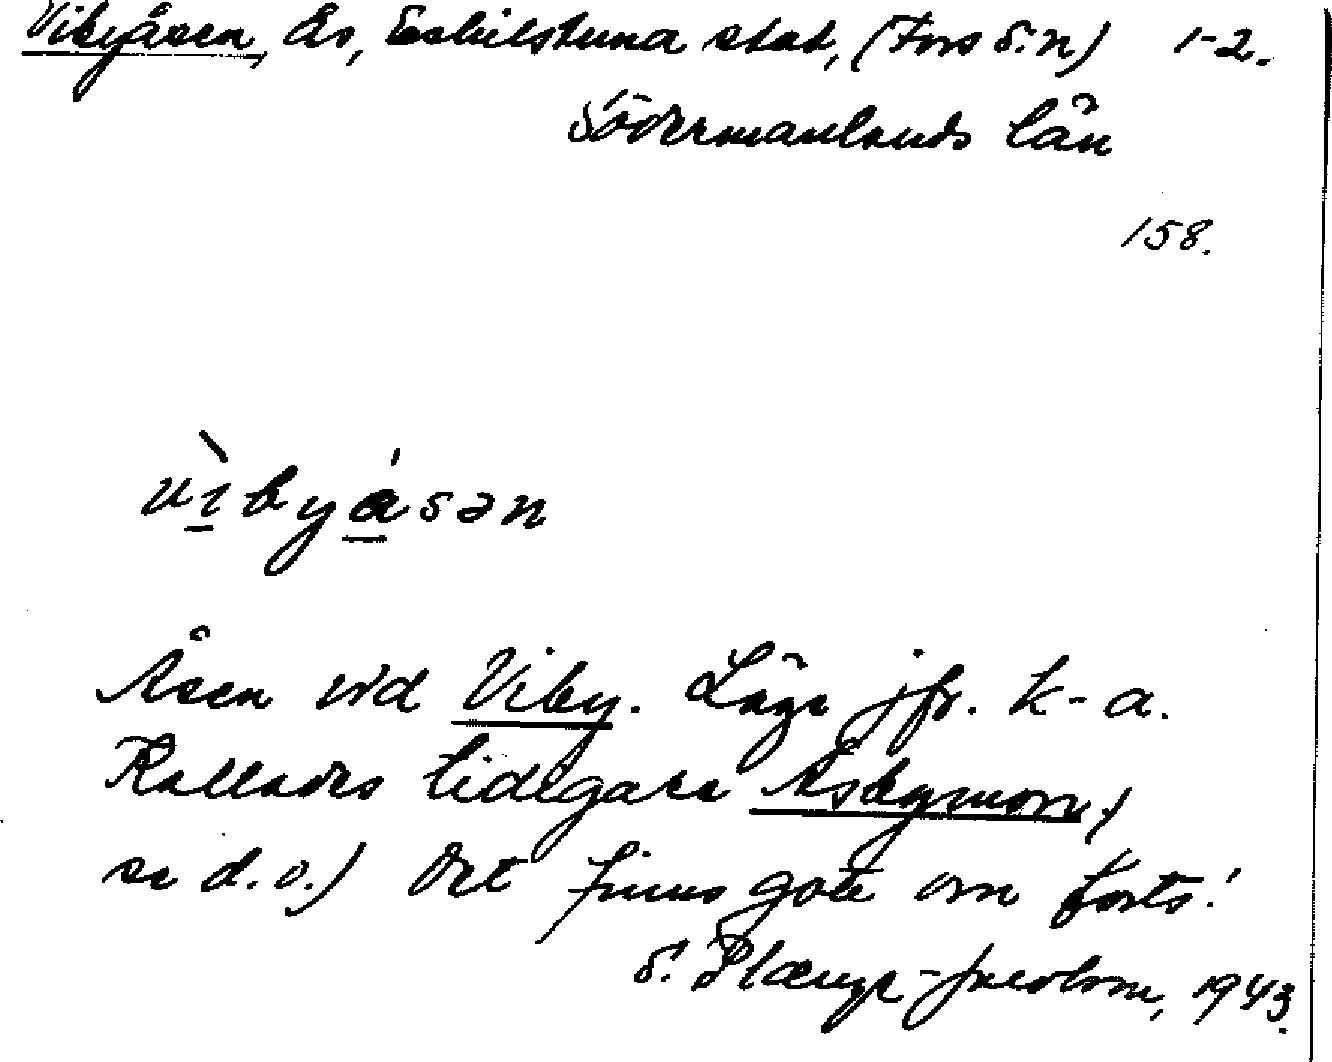 Vibyåsen, ås, Eskilstuna stad, (Fors s:n) 1-2.
Södermanlands län
158.
vìbyåsən
Åsen vid Viby. Läge jfr. k-a.
Kallades tidigare Åsbymon,
se d.o.) Det finns gott om
S. Plænge-Jacobson, 1943.